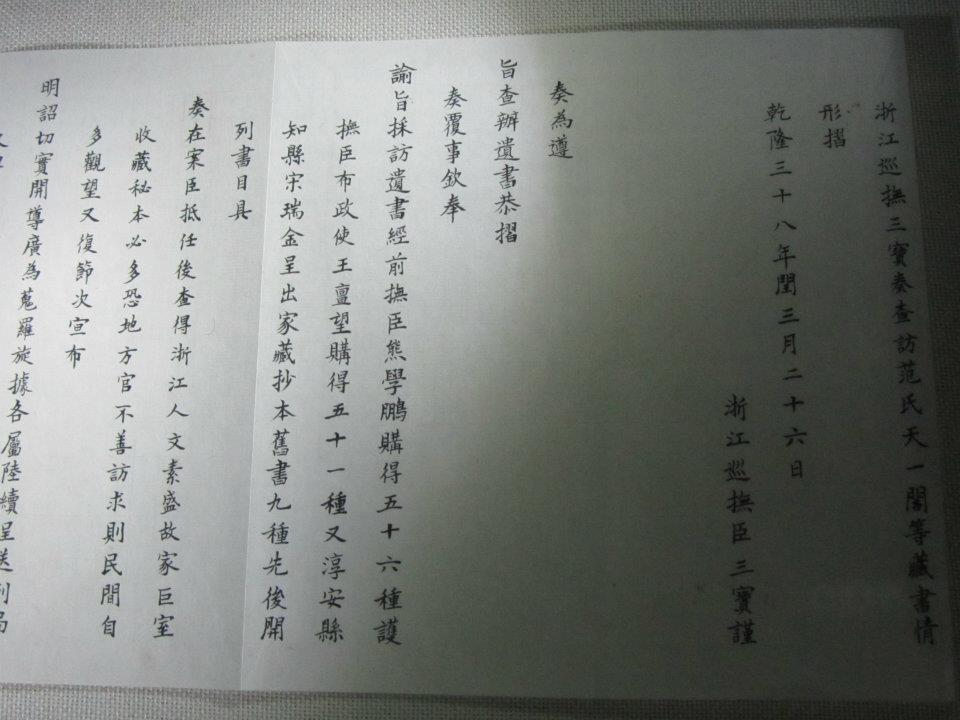 浙江巡撫三寶奏查訪范氏天一閣等藏書情
形摺
乾隆三十八年閏三月二十六日
浙江巡撫臣三寶謹
奏為遵
旨查辦遺書恭摺
奏覆事欽奉
諭旨採訪遺書經前撫臣熊學鵬購得五十六種護
撫臣布政使王亶望購得五十一種又淳安縣
知縣宋瑞金呈出家藏抄本舊書九種先後開
列書目具
奏在案臣抵任後查得浙江人文素盛故家巨室
收藏秘本必多恐地方官不善訪求則民間自
多觀望又復節次宣布
明詔切實開導廣為蒐羅旋據各屬陸續呈送到局